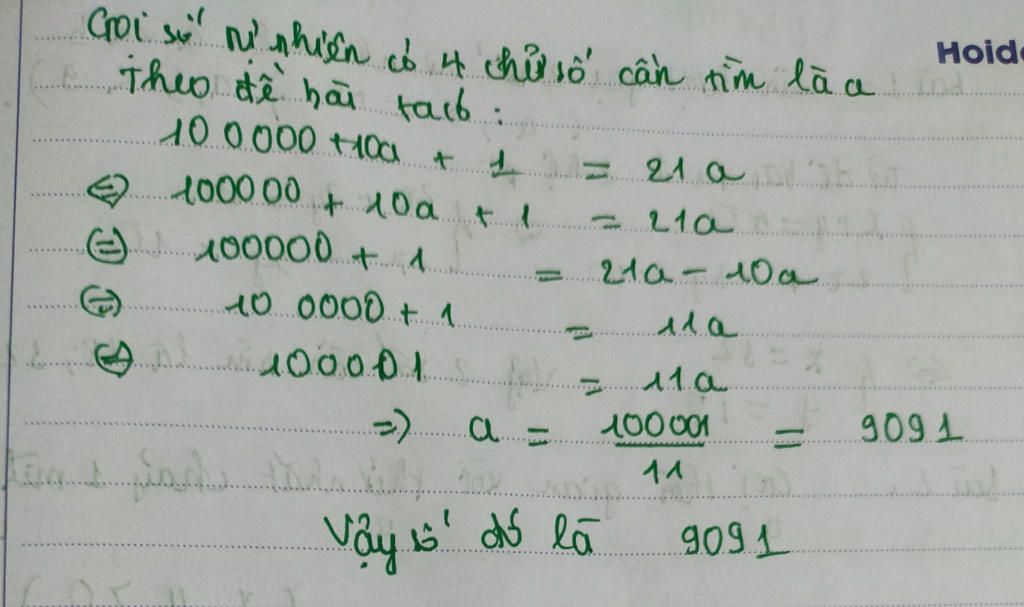 Gọi số tự nhiên có 4 chữ số cần tìm là a
Hoido
Theo đề bài ta có :
10 0000 + 10a + 1 = 21a
⇔ 100000 + 10a + 1 = 21a
⇔ 100000 + 1 = 21a - 10a
⇔ 10 0000 + 1 = 11a
⇔ 100001 = 11a
=> a = 100001 / 11 = 9091
Vậy số đó là 9091